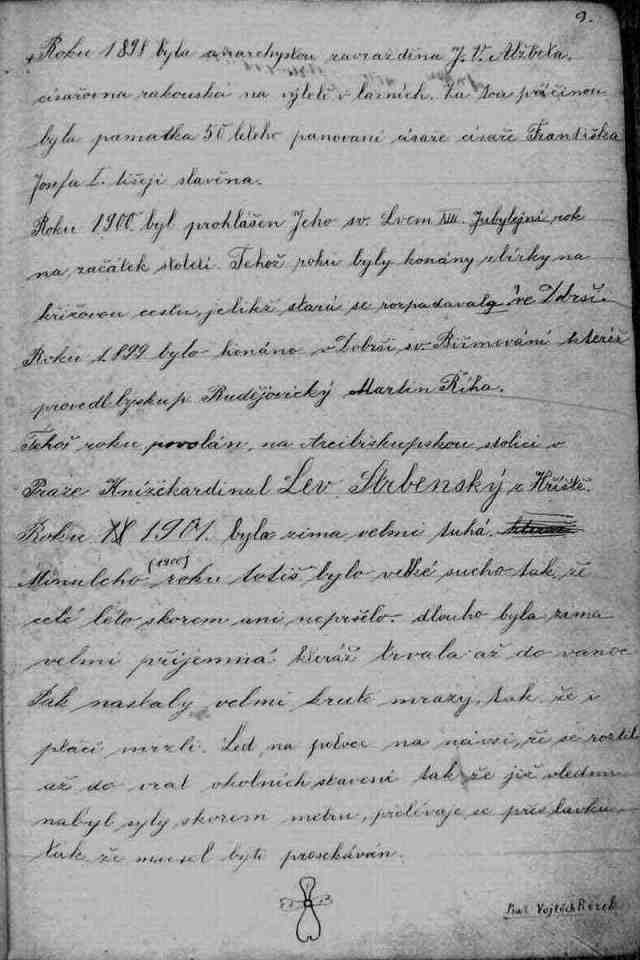 9.
Roku 1898 byla anarchystou zavražděna J. V. Alžběta.
císařovna rakouská na výletě v lázních. Za tou příčinou
byla pamatka 50 letého panovaní císaře císaře Františka
Josefa I. tišeji slavena.
Roku 1900 byl prohlášen Jeho sv. Lvem XIII. Jubylejní rok
na začátek století. Tehož roku byly konány sbírky na
křížovou cestu, jelikž stará se rozpadavala ve Dobrši.
Roku 1899 bylo konáno v Dobrši sv. Biřmování kteréž
provedl byskup Budějovický Martin Říha.
Tehož roku povolán, na Arcibiskupskou stolici v
Praze Knížekardinal Lev Skrbenský z Hříště.
Roku 1901. byla zima velmi tuhá.
Minulého (1900) roku totiš bylo velké sucho tak, že
celé léto skorem ani nepršelo. dlouho byla zima
velmi příjemná kteráž trvala až do vanoc
Pak nastaly velmi kruté mrazy, tak že i
ptáci mrzli. Led na potoce na návsi, že se rozlil
až do vrat okolních stavení tak že již
nabyl syly skorem metru, přelívaje se přes lavku
tak že musel byti prosekáván.
Vojtěch